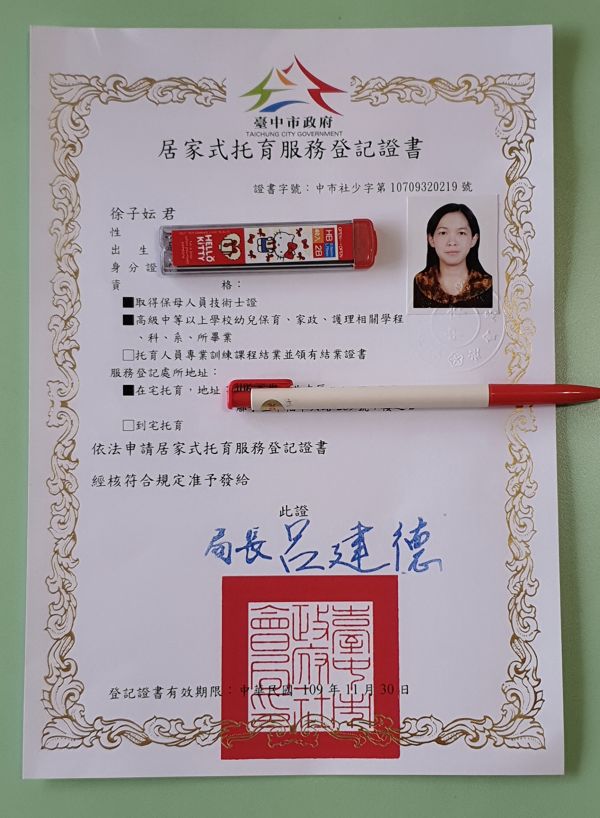 臺中市政府
TAICHUNG CITY GOVERNMENT
居家式托育服務登記證書
證書字號：中市社少字第10709320219號
徐子妘 君
性
出 生
身 分 證
資 格：
■取得保母人員技術士證
■高級中等以上學校幼兒保育、家政、護理相關學程
、科、系、所畢業
□托育人員專業訓練課程結業並領有結業證書
服務登記處所地址：
■在宅托育，地址：
□到宅托育
依法申請居家式托育服務登記證書
經核符合規定准予發給
此證
局長 呂建德
臺中市政府社會局印
登記證書有效期限：中華民國 109 年 11 月 30 日
HELLO KITTY
HB
2B